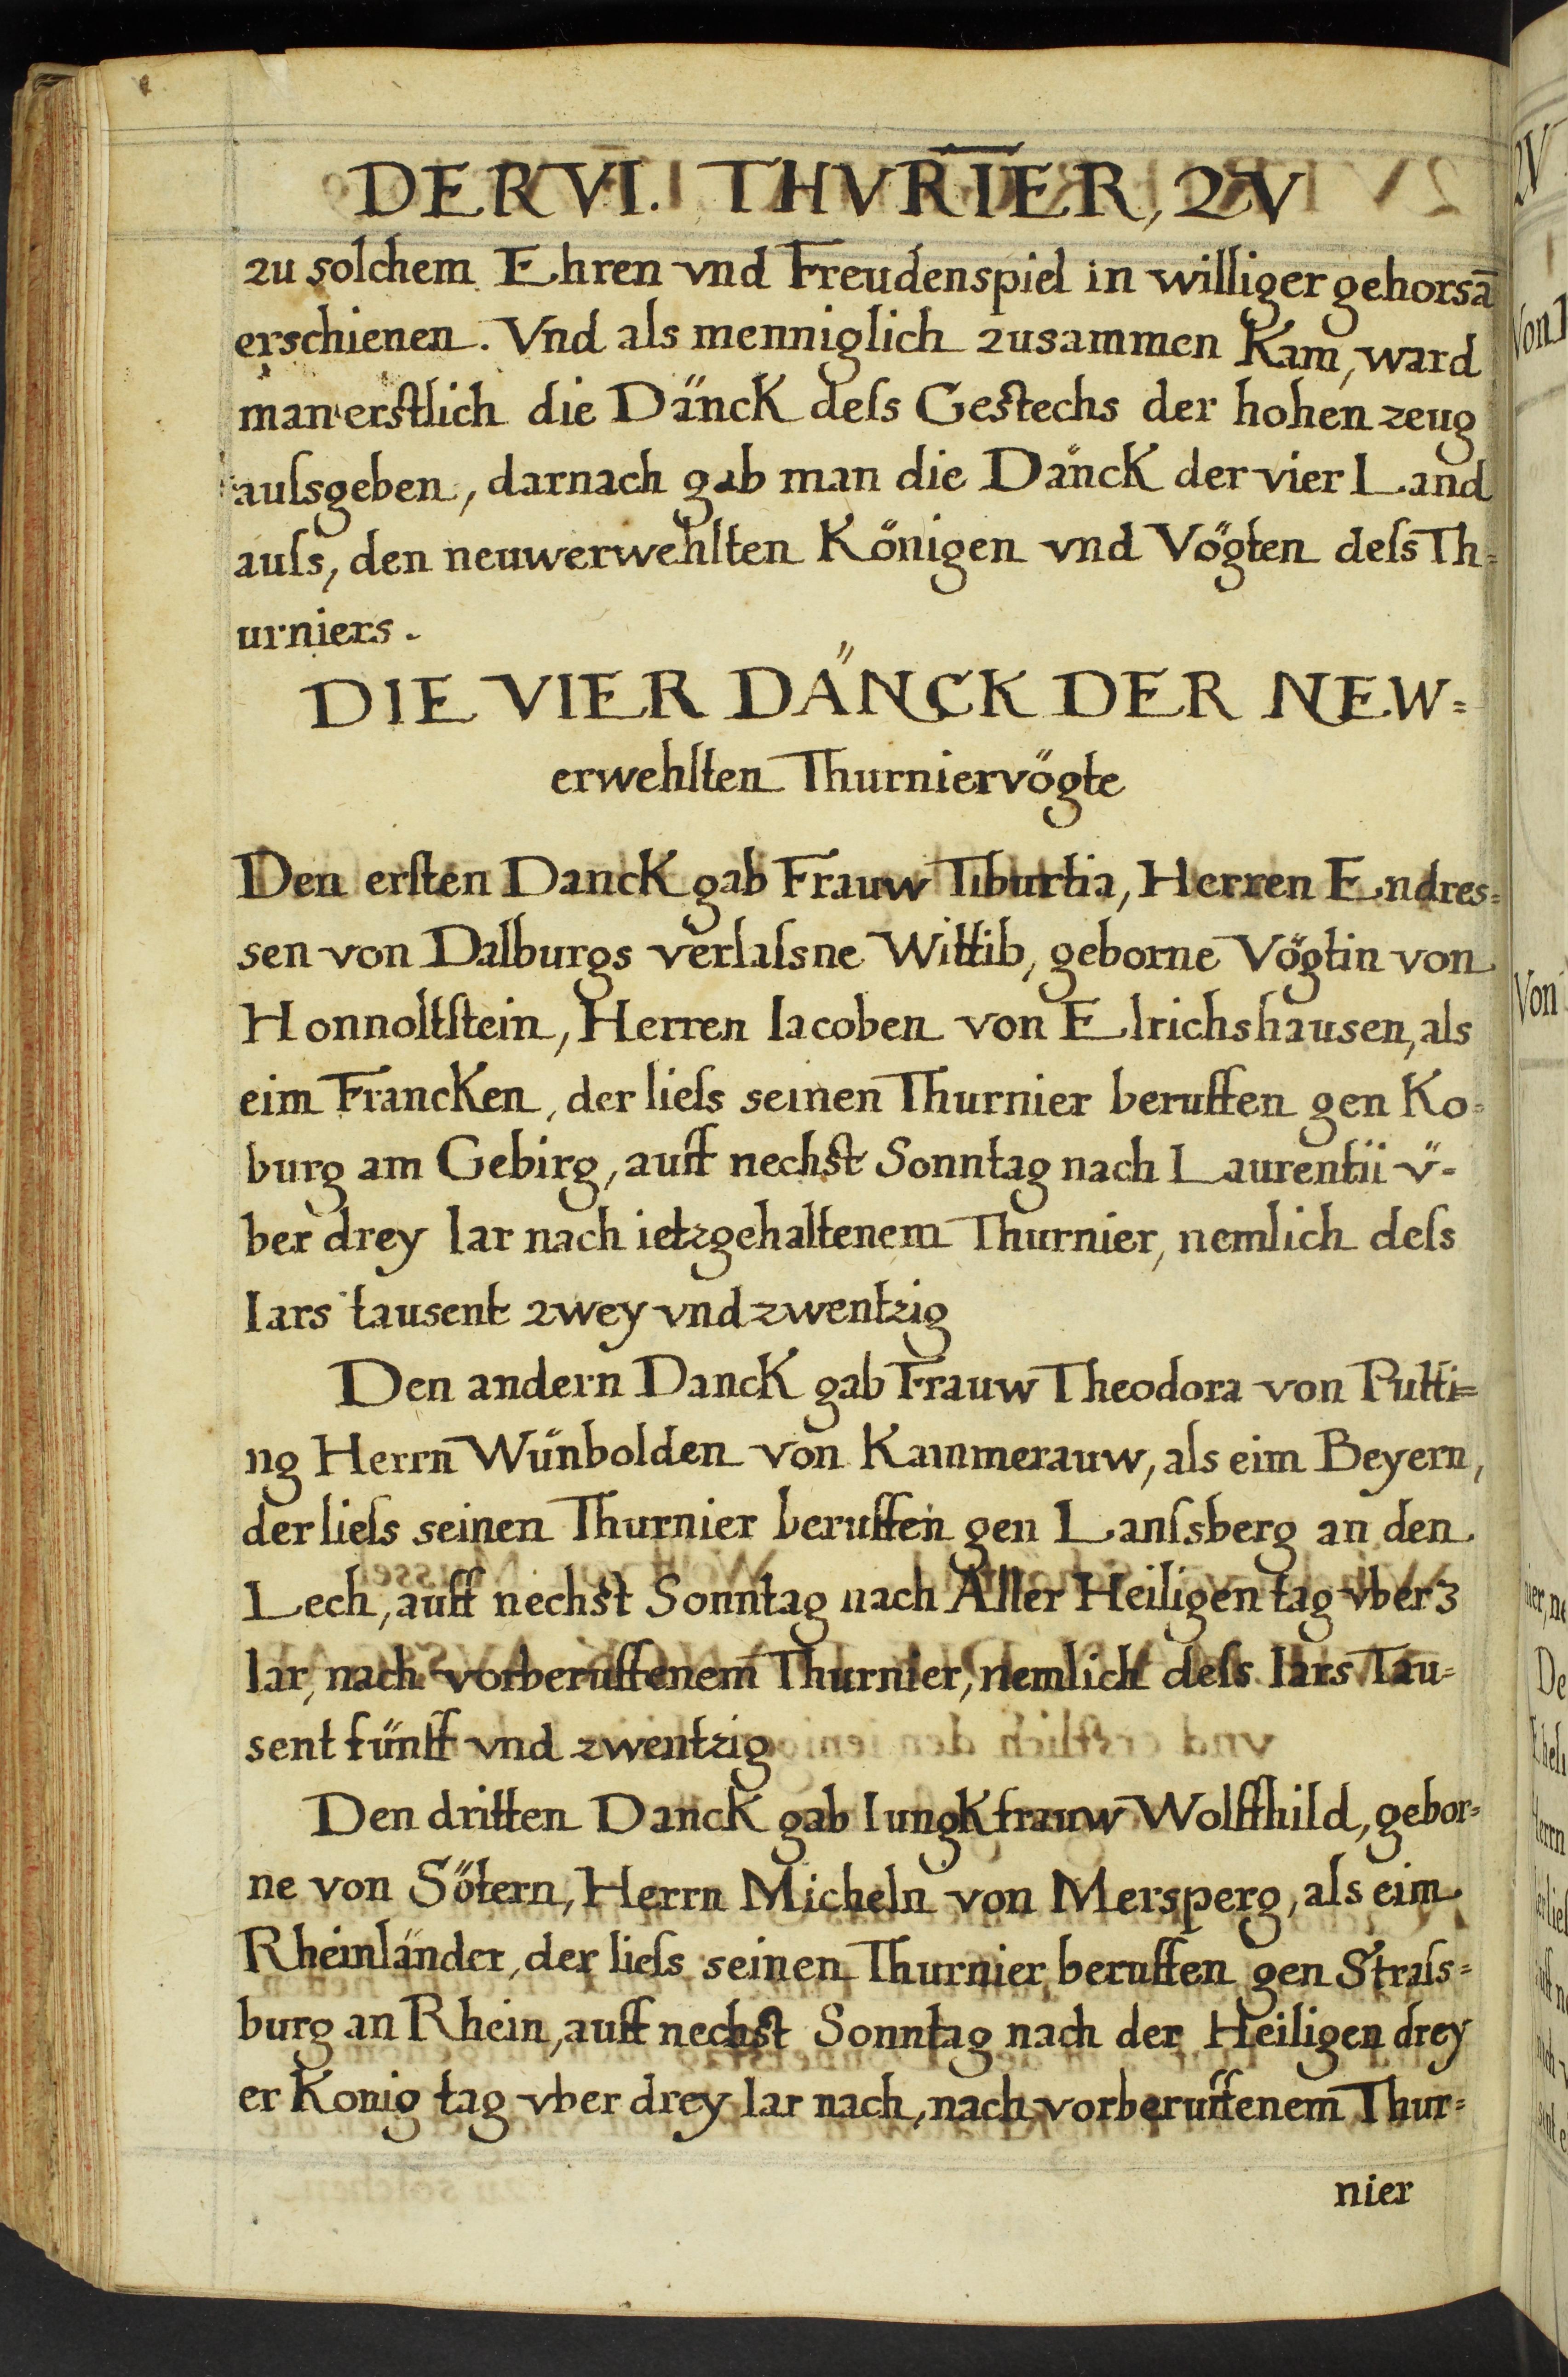 DER VI. THVRI̅ER, ZV
zu solchem Ehren vnd Freudenspiel in williger gehorsā
erschienen. Vnd als menniglich zusammen Kam, ward
man erstlich die DäncK deſs Gestechs der hohen zeug
auſsgeben, darnach gab man die DäncK der vier Land
auſs, den neuwerwehlten Königen vnd Vögten deſs Th=
urniers.
DIE VIER DÄNCK DER NEW=
erwehlten Thurniervögte
Den ersten DancK gab Frauw Tiburtia, Herren Endres=
sen von Dalburgs verlaſsne Wittib, geborne Vögtin von
Honnoltstein, Herren Iacoben von Elrichshausen, als
eim FrancKen, der lieſs seinen Thurnier beruffen gen Ko=
burg am Gebirg, auff nechst Sonntag nach Laurentii v̈=
ber drey Iar nach ietzgehaltenem Thurnier, nemlich deſs
Iars tausent zwey vnd zwentzig
Den andern DancK gab Frauw Theodora von Putti=
ng Herrn Wünbolden von Kammerauw, als eim Beyern,
der lieſs seinen Thurnier beruffen gen Lanſsberg an den
Lech, auff nechst Sonntag nach Aller Heiligen tag vber 3
Iar, nach vorberuffenem Thurnier, nemlich deſs Iars Tau=
sent fünff vnd zwentzig
Den dritten DancK gab IungKfrauw Wolffhild, gebor=
ne von Sötern, Herrn Micheln von Mersperg, als eim
Rheinländer, der lieſs seinen Thurnier beruffen gen Straſs=
burg an Rhein, auff nechst Sonntag nach der Heiligen drey
er Konig tag vber drey Iar nach, nach vorberuffenem Thur=
nier